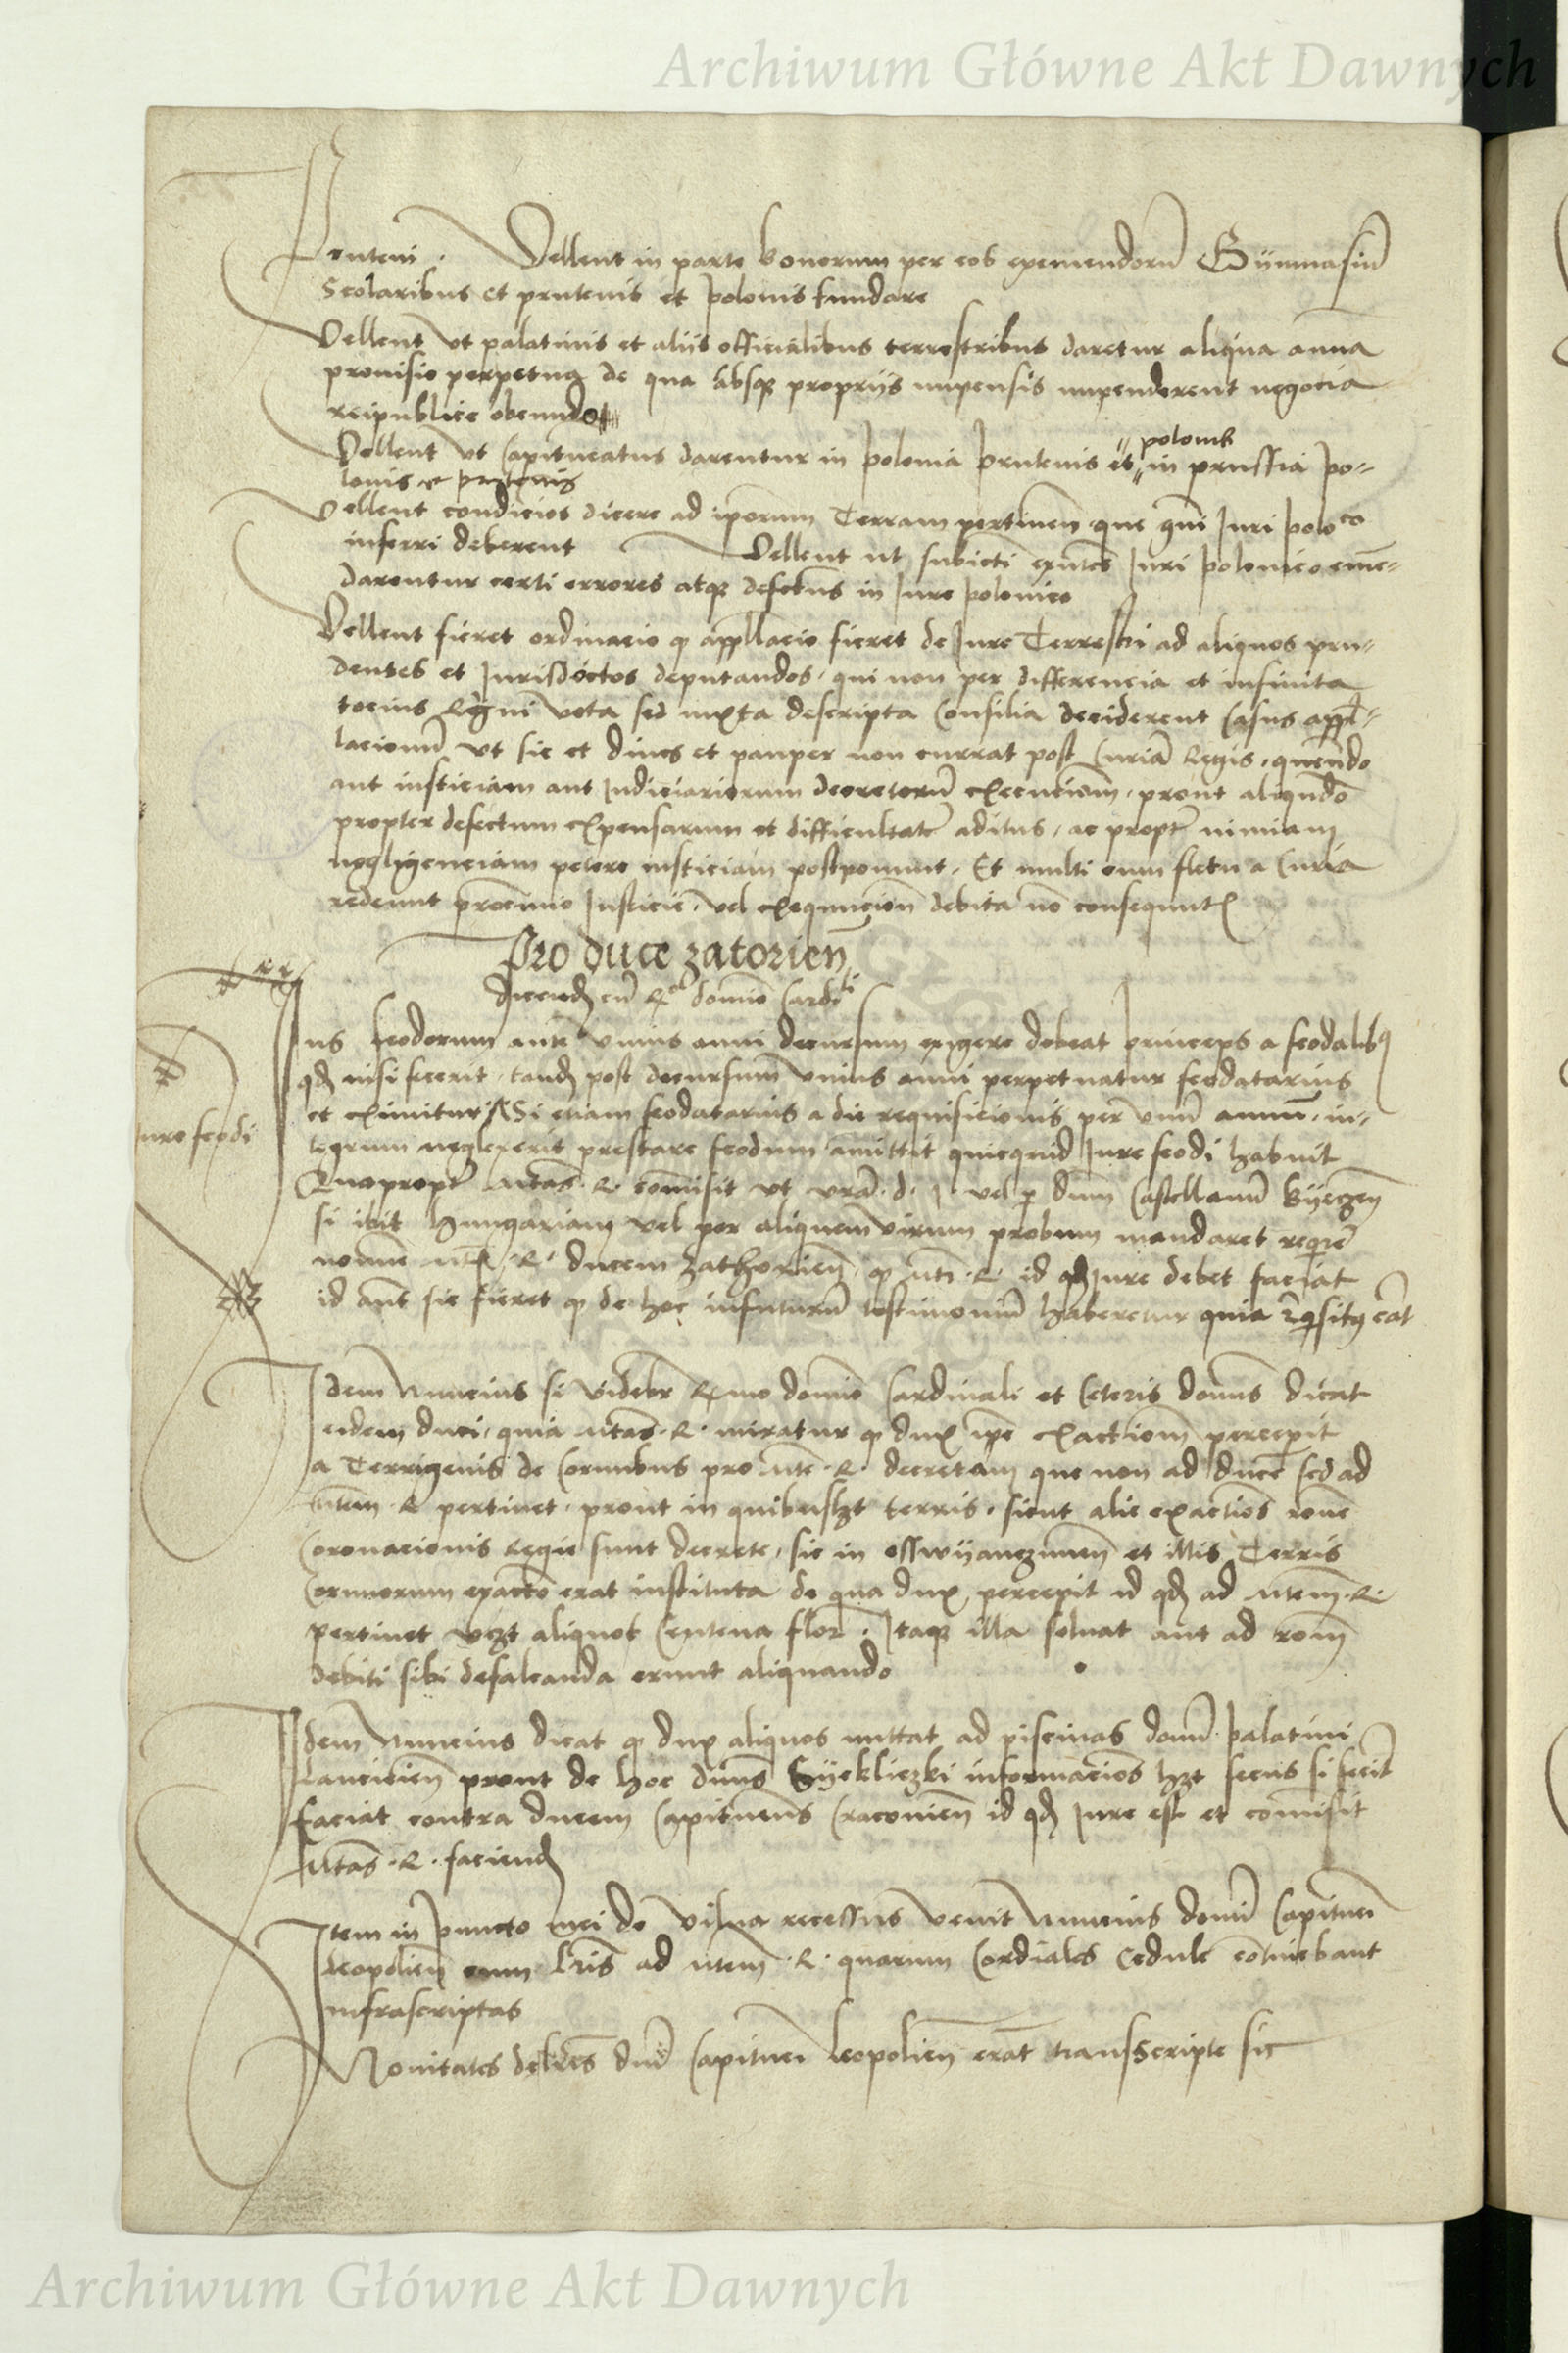 Archiwum Główne Akt Dawnych
Pruteni. Vellent in parte bonorum per eos exemendorū Gÿmnasiū
Scolaribus et prutenis et polonis fundare
Vellent ut palatinis et aliis officialibus terrestribus daretur aliqua annua
provisio perpetua de qua absque proprÿs impensis impenderent negocia
reipublice obeundo
polonis
Vellent ut Capitneatus darentur in polonia prutenis et in prussia po-
lonis et prutenis
Vellent condicios dicere ad iporum Terram pertinen que qm Juri poloco
inferri deberent Vellent ut subiecti exntes Juri polonico emē-
darentur certi errores atque defectus in Jure polonico
Vellent fieret ordinacio q appllacio fieret de Jure Terrestri ad aliquos pru-
dentes et Jurisdoctos deputandos, qui non per differencia et infinita
tocius Regni vota sed iuxta descripta Consilia deciderent Casus appl-
lacionū ut sic et dives et pauper non currat post Curiā Regis, querendo
aut iusticiam aut Judiciariorum decretorū execucionem, prout aliqndo
propter defectum expensarum et difficultatē aditus, ac propt nimiam
negligenciam petere iusticiam postponunt. Et multi cum fletu a Curia
redeunt Justicie, vel exequucion debita nō consequntr
Pro duce zatorien
dicend cū Rmo domino Cardli
Jus feodorum ante unius anni decursum exigere debeat princeps a feodalibus
qd nisi fecerit, tand post decursum unius anni perpetuatur feodatarius
et eximitur, Si etiam feodatarius a die requisicionis per unū annum in-
Jure feodi
tegrum neglexerit prestare feodum amittit quicquid Jure feodi habuit
Quapropt Mtas R. comisit ut vra d. vel p dnm Castellanū Byeczen
si ibit Hungariam vel per aliquem virum probum mandaret requiri
nomine Mtis R. ducem Zathorien, q Mti R. id qd Jure debet faciat
id aut sic fieret q de hoc infuturū testimoniū haberetur quia reqsitus erat
Idem Nuncius si videbr Rmo domino Cardinali et Ceteris domīs dicat
eidem duci, quia Mtas R. miratur q dux ipe exactionem percepit
a Terrigenis de Cornubus pro Mte R. decretam que non ad ducē sed ad
Mtem R pertinet, prout in quibuslzt terris, sicut alie exactios rone
Coronacionis Regie sunt decrete, sic in osswÿanczimen et illis Terris
Cornuorum exactio erat instituta de qua dux percepit id qd ad Mtem R.
pertinet vczt aliquot Centena flor. Itaque illa solvat aut ad ronem
debiti sibi defalcanda erunt aliquando
Idem Nuncius dicat q dux aliquos mittat ad piscinas domi palatini
Lancicien prout de hoc dnus informacios hzt secus si fecit
faciat contra ducem Capitneus Cracovien id qd Jure est et comisit
Mtas R. faciend
Item in puncto mei de vilna recessus venit Nuncius domi Capitnei
leopolien cum lris ad Mtem R. quarum Cordiales Cedule cotinebant
infrascriptas
Novitates dni Capitnei leopolien erāt transscripte sic
Archiwum Główne Akt Dawnych